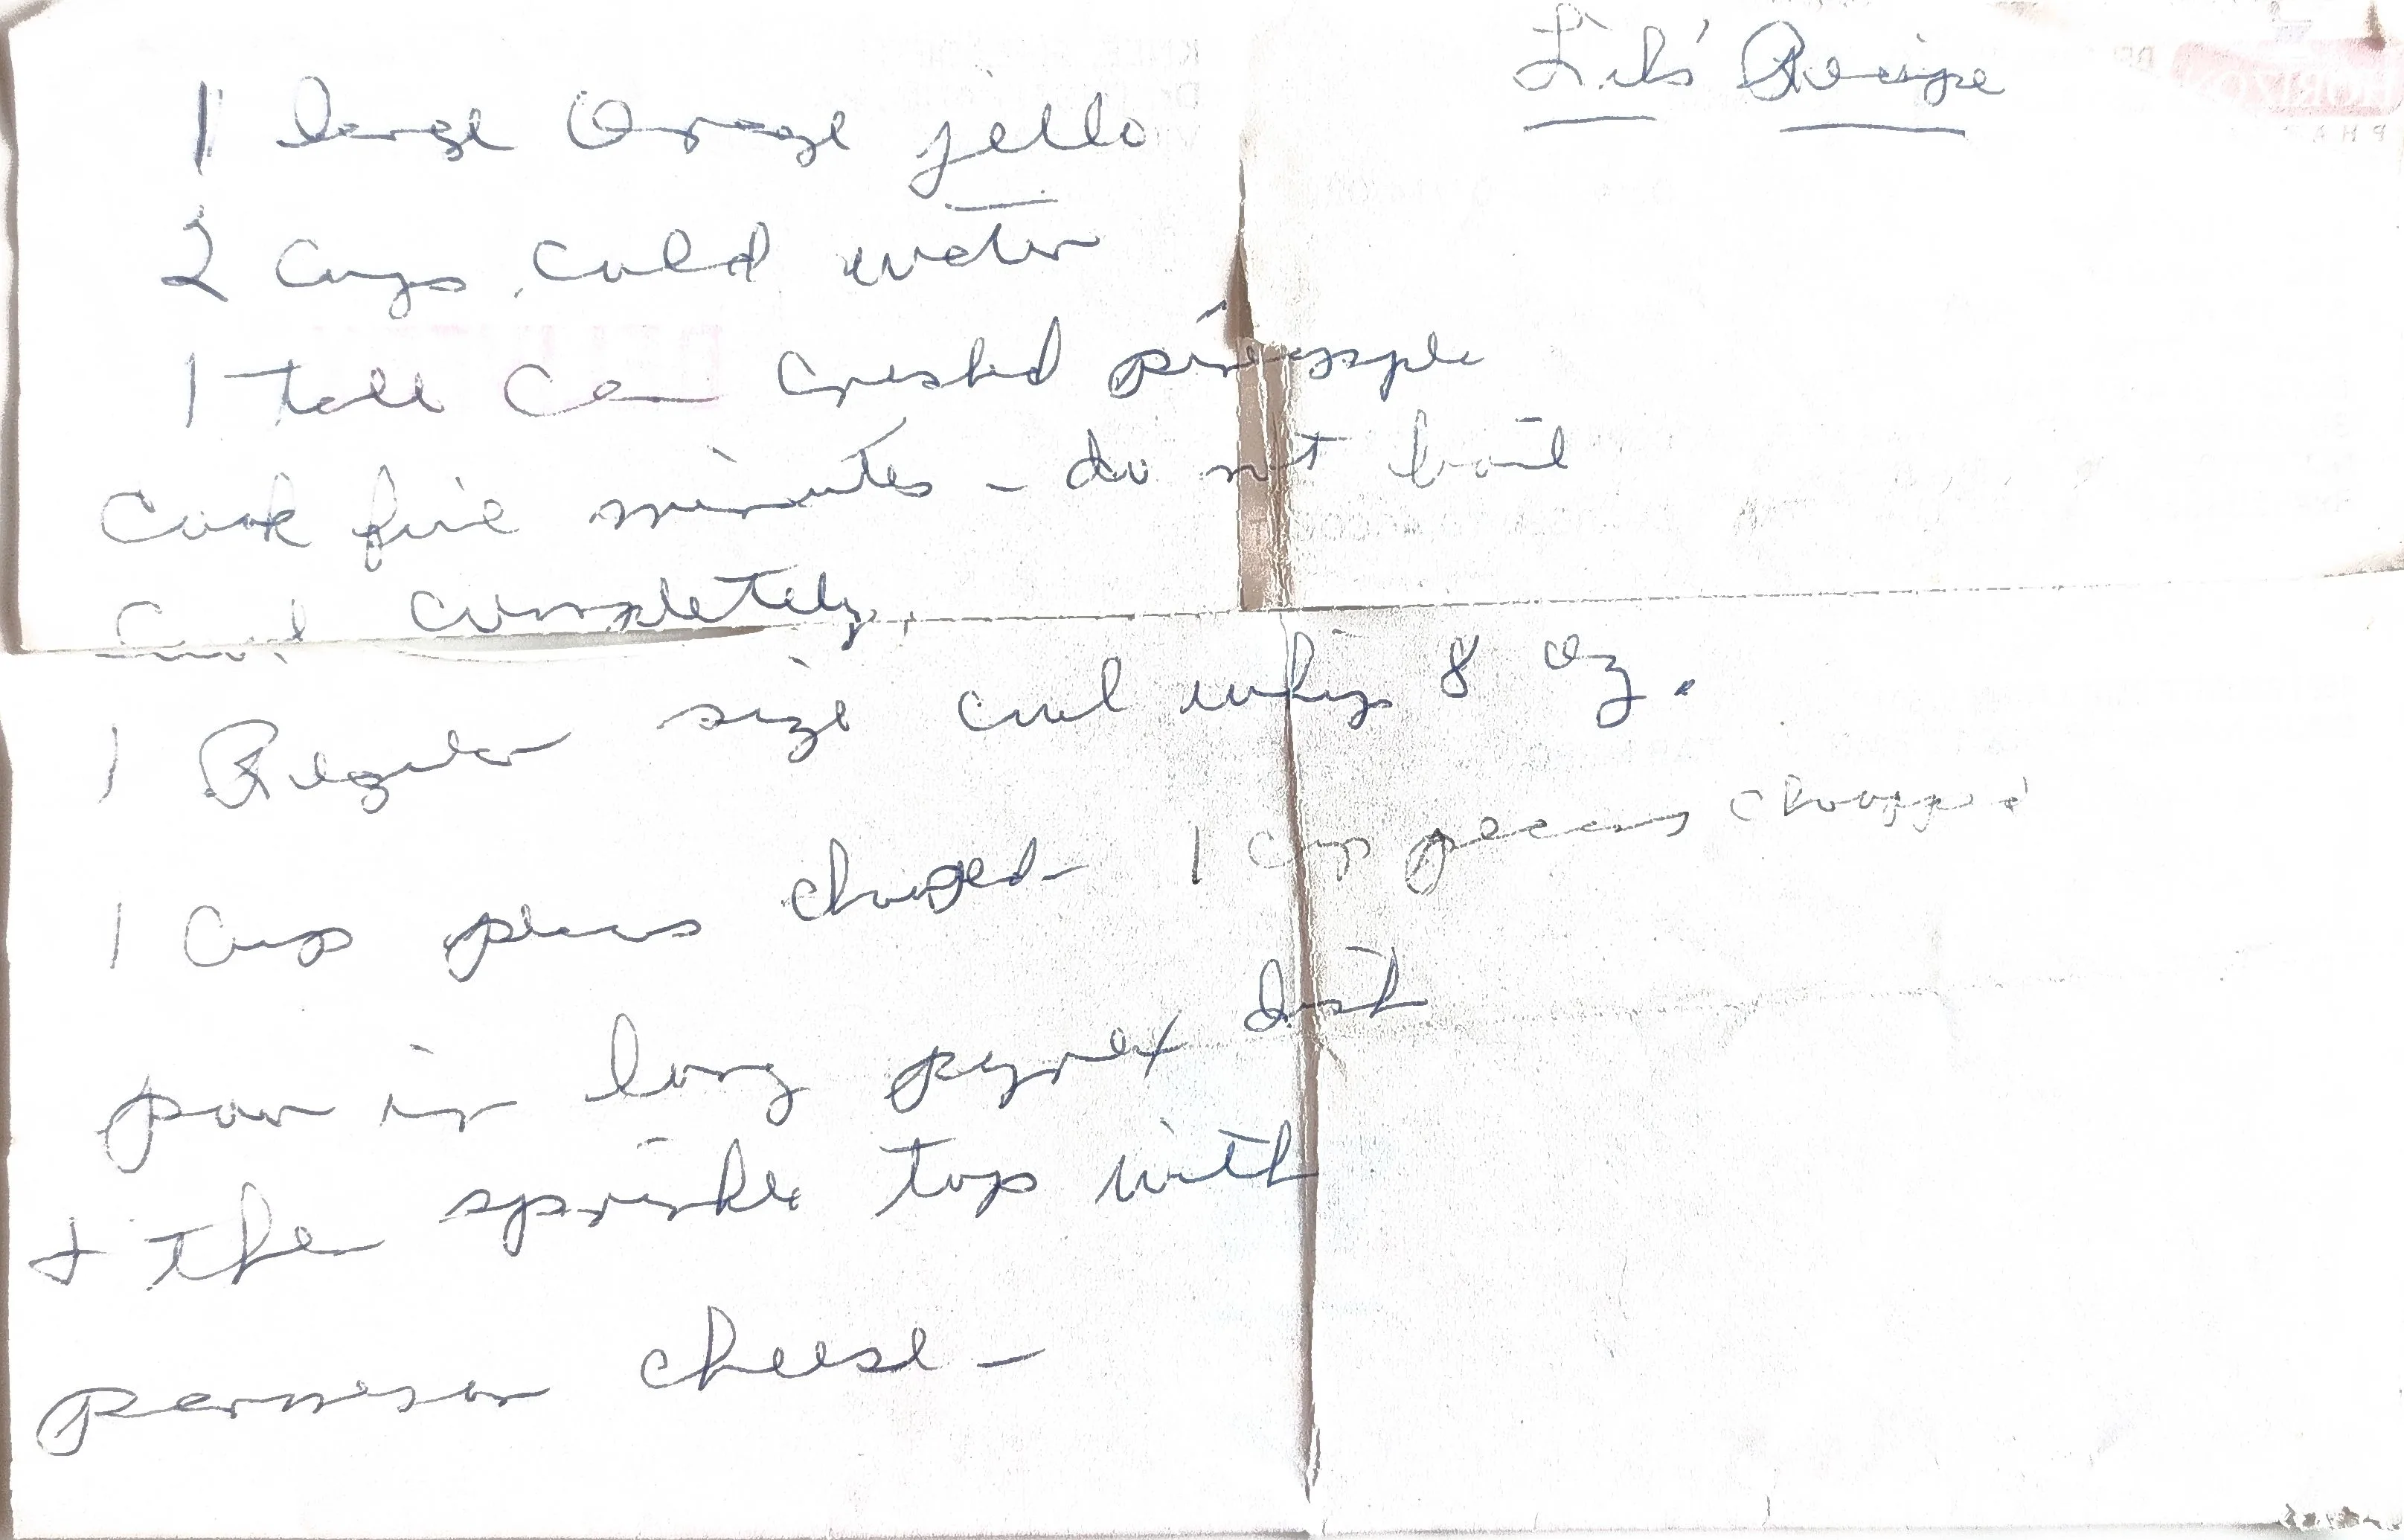 Lils' Recipe
1 large Orange jello
2 cups cold water
1 tall can crushed pineapple
Cook five minutes - do not boil
Cool completely.
1 Regular size cool whip 8 oz.
1 Cup pecans chopped 1 cup pecans chopped
pour in long pyrex dish
+ the sprinkle top with
parmesan cheese -